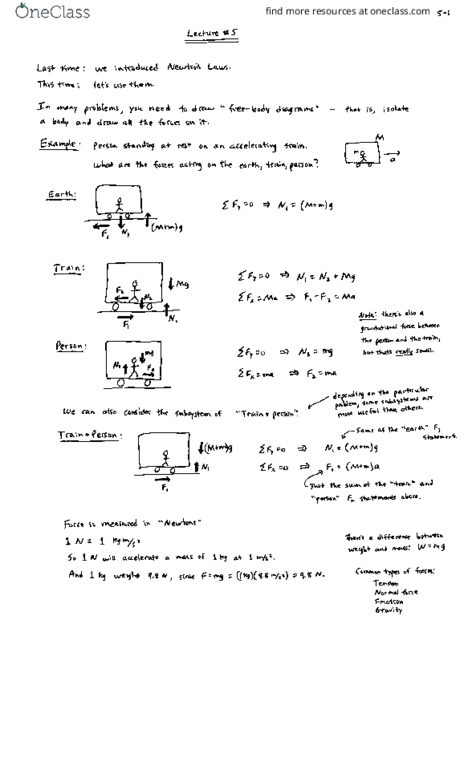 OneClass
find more resources at oneclass.com
5-1
Lecture #5
Last time: we introduced Newton's Laws.
This time: let's use them.
In many problems, you need to draw "free-body diagrams" - that is, isolate
a body and draw all the forces on it.
Example: Person standing at rest on an accelerating train.
What are the forces acting on the earth, train, person?
M
m
a
Earth:
F₁
N₁
(M+m)g
ΣFy=0 ⇒ N₁ = (M+m)g
Train:
F₂
N₂
Mg
F₁
N₁
ΣFy=0 ⇒ N₁ = N₂ + Mg
ΣFx=Ma ⇒ F₁-F₂=Ma
Note: there's also a
gravitational force between
the person and the train,
but that's really small.
Person:
N₂
mg
F₂
ΣFy=0 ⇒ N₂ = mg
ΣFx=ma ⇒ F₂=ma
We can also consider the subsystem of "Train + person"
depending on the particular
problem, some subsystems are
more useful than others.
Train+Person:
(M+m)g
N₁
F₁
ΣFy=0 ⇒ N₁ = (M+m)g
Same as the "earth" Fy
statement.
ΣFx=0 ⇒ F₁ = (M+m)a
Just the sum of the "train" and
"person" Fx statements above.
Force is measured in "Newtons"
1 N = 1 kg m/s²
So 1 N will accelerate a mass of 1 kg at 1 m/s².
And 1 kg weighs 9.8 N, since F=mg = (1kg)(9.8 m/s²) = 9.8 N.
There's a difference between
weight and mass: W=mg
Common types of forces:
Tension
Normal force
Friction
Gravity